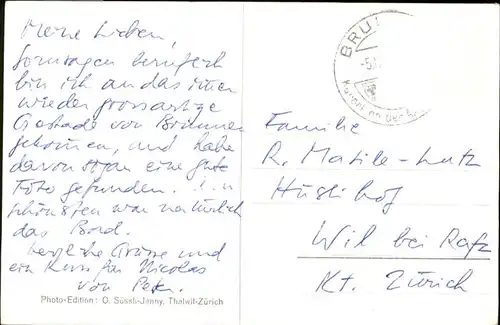 Meine Lieben,
sozusagen beruflich
bin ich an das immer
wieder grossartige
Gestade von Brunnen
gekommen, und habe
davon sogar eine gute
Foto gefunden.
schönsten war natürlich
das Bord.
Herzliche Grüsse und
ein Kuss für Nicolas
von Peter.
Photo-Edition: O. Süssli-Jenny, Thalwil-Zürich
BRU
Kurort an der
Familie
R. Matile-Lutz
Huslihof
Wil bei Rafz
Kt. Zürich